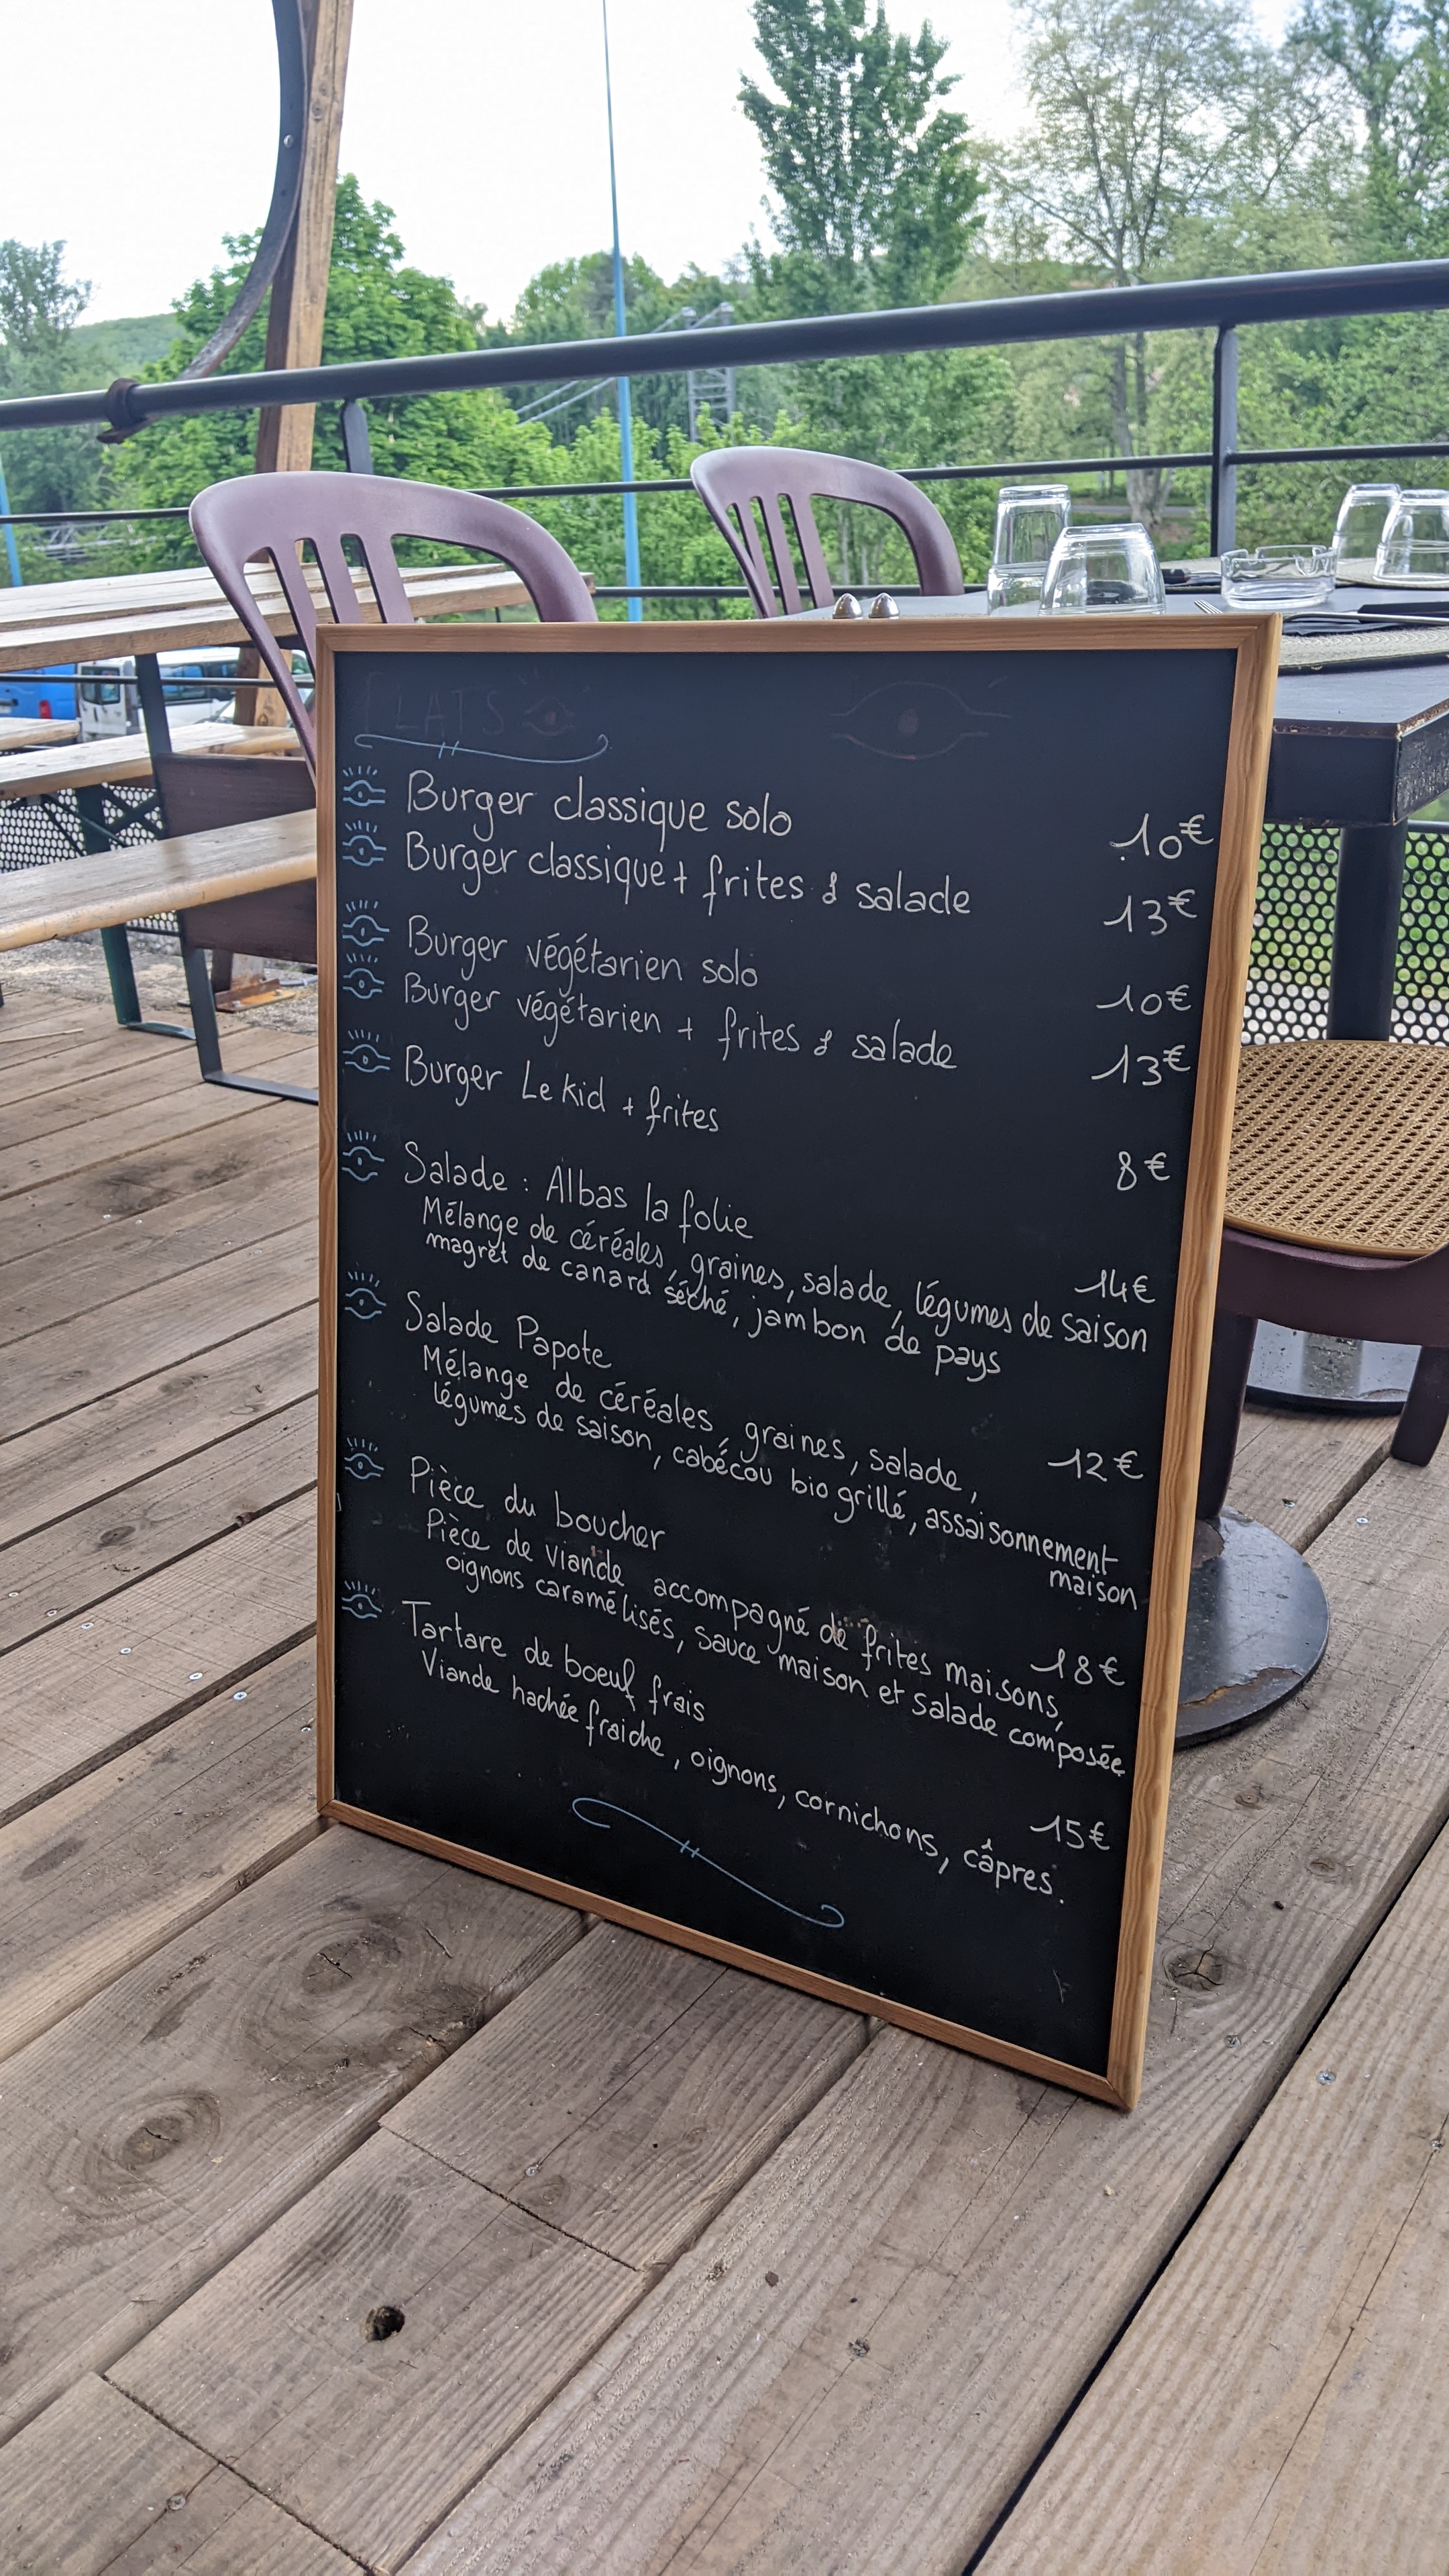 PLATS
Burger classique solo 10€
Burger classique + frites & salade 13€
Burger végétarien solo 10€
Burger végétarien + frites & salade 13€
Burger Le kid + frites 8€
Salade : Albas la folie 14€
Mélange de céréales, graines, salade, légumes de saison
magret de canard séché, jambon de pays
Salade Papote 12€
Mélange de céréales, graines, salade,
légumes de saison, cabécou bio grillé, assaisonnement
maison
Pièce du boucher 18€
Pièce de viande accompagné de frites maisons,
oignons caramélisés, sauce maison et salade composée
Tartare de boeuf frais 15€
Viande hachée fraiche, oignons, cornichons, câpres.